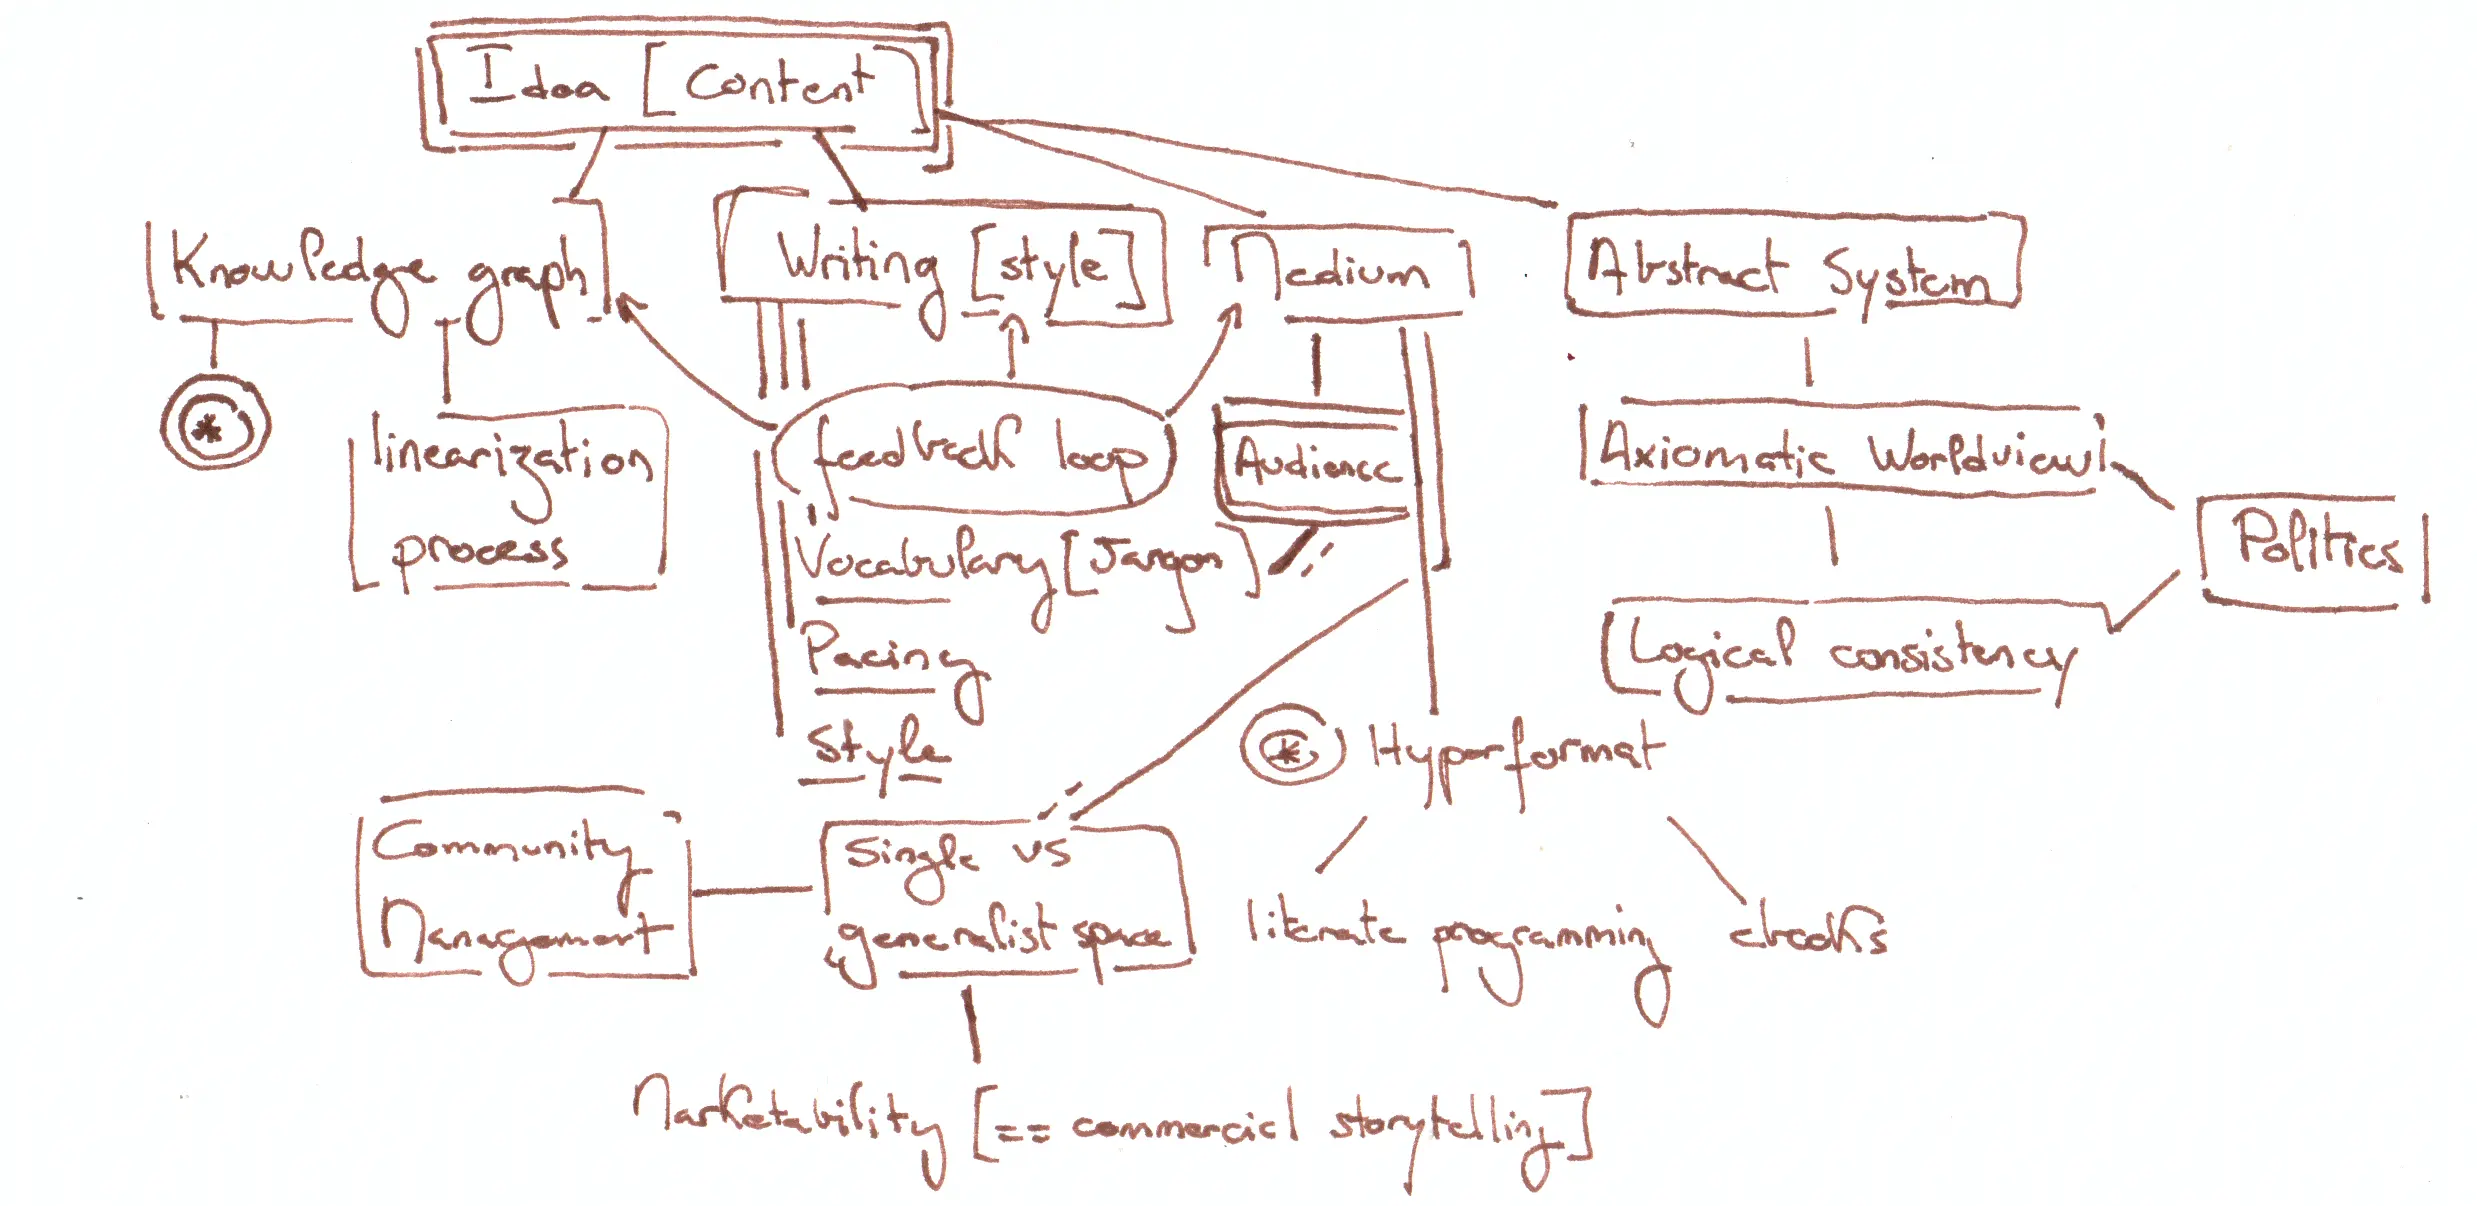 Idea [Content]
Knowledge graph
Writing [style]
Medium
Abstract System
*
linearization
process
feedback loop
Audience
Axiomatic Worldview
Politics
Vocabulary [Jargon]
Pacing
Style
Logical consistency
* Hyperformat
Community
Management
Single vs
generalist space
literate programming
checks
Marketability [== commercial storytelling]